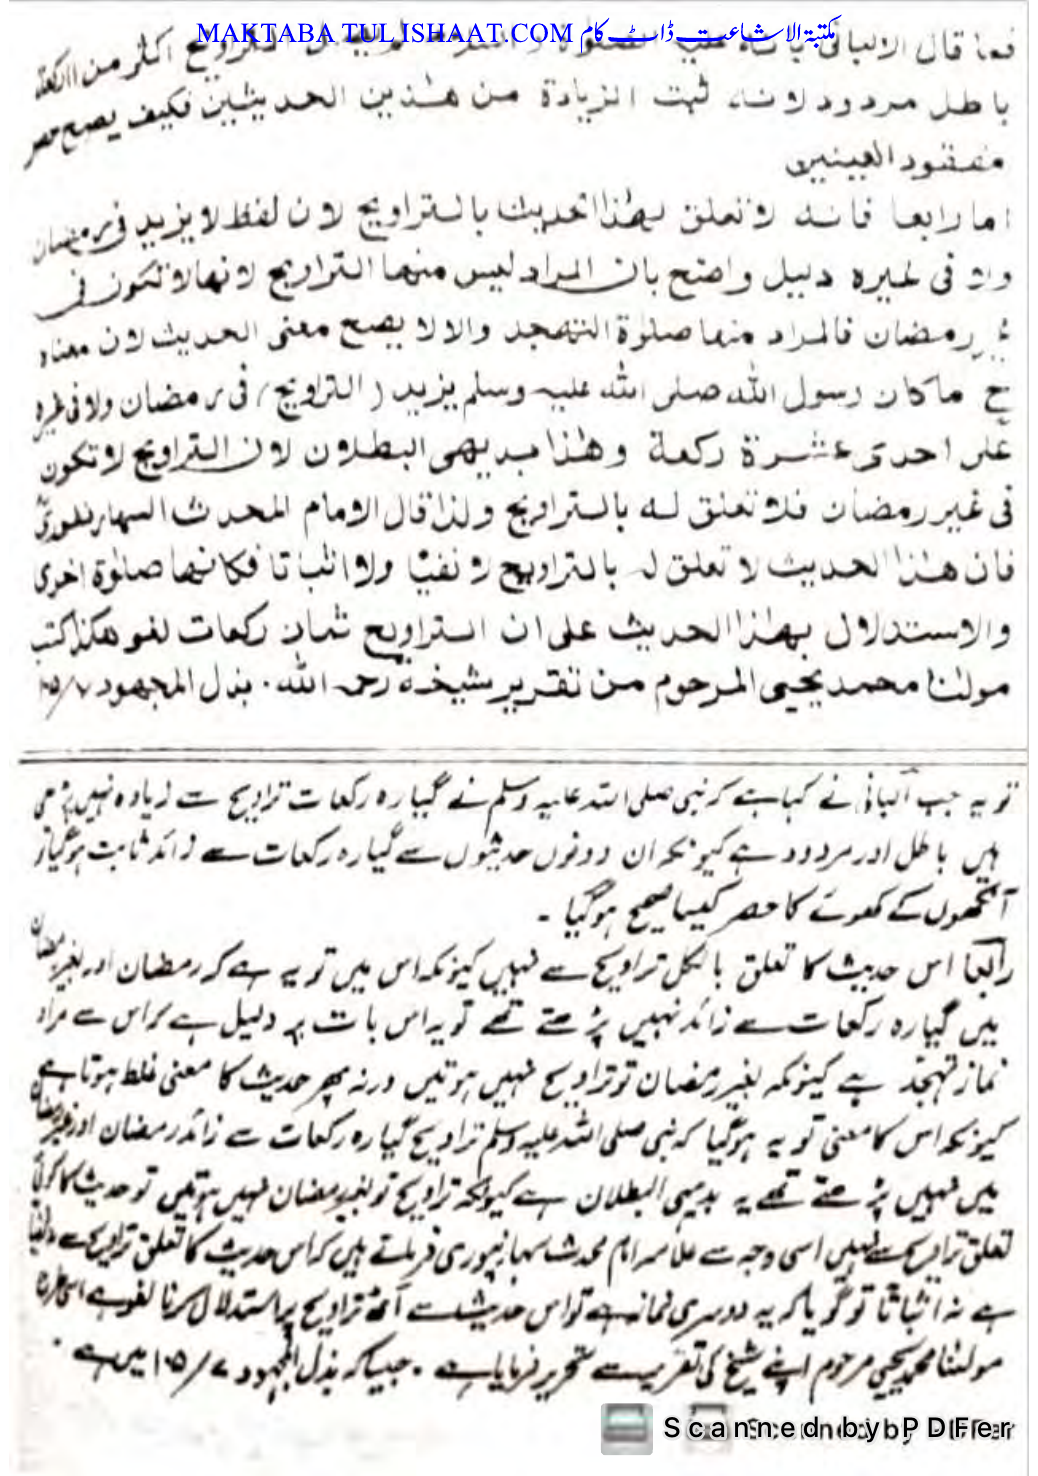 MAKTABA TUL ISHAAT.COM مکتبۃ الاشاعت ڈاٹ کام
فما قال الالبانی التراویح اکثر من
باطل مردود لانہ ثبت الزیادة من هٰذین الحدیثین فکیف یصح حصر
مفقود العینین
اما رابعا فانه لا تعلق لهٰذا الحدیث بالتراویح لان لفظ لا یزید فی رمضان
ولا فی غیره دلیل واضح بان المراد لیس منها التراویح لانها لا تکون فی
غیر رمضان فالمراد منها صلوٰة التهجد والا لا یصح معنی الحدیث لان معناه
ح ماکان رسول الله صلی الله علیه وسلم یزید (التراویح) فی رمضان ولا فی غیره
علی احدی عشرة رکعة وهٰذا بدیهی البطلان لان التراویح لا تکون
فی غیر رمضان فلا تعلق له بالتراویح ولذا قال الامام المحدث السهارنفوری
فان هٰذا الحدیث لا تعلق له بالتراویح لا نفیًا ولا اثباتا فکانها صلوٰة اخری
والاستدلال بهٰذا الحدیث علی ان التراویح ثمان رکعات لغو هکذا کتب
مولٰنا محمد یحیی المرحوم من تقریر شیخه رحمه الله. بذل المجهود
تو یہ جب البانی نے کہا ہے کہ نبی صلی اللہ علیہ وسلم نے گیارہ رکعات تراویح سے زیادہ نہیں پڑھی
ہیں باطل اور مردود ہے کیونکہ ان دونوں حدیثوں سے گیارہ رکعات سے زائد ثابت ہوگیا تو
آنکھوں کے کھوئے کا حصر کیسا صحیح ہوگیا ۔
رابعًا اس حدیث کا تعلق بالکل تراویح سے نہیں کیونکہ اس میں تو یہ ہے کہ رمضان اور بغیر رمضان
میں گیارہ رکعات سے زائد نہیں پڑھتے تھے تو یہ اس بات پر دلیل ہے کہ اس سے مراد
نماز تہجد ہے کیونکہ بغیر رمضان تو تراویح نہیں ہوتیں ورنہ پھر حدیث کا معنی غلط ہوتا ہے
کیونکہ اس کا معنی تو یہ ہوگیا کہ نبی صلی اللہ علیہ وسلم تراویح گیارہ رکعات سے زائد رمضان اور بغیر رمضان
میں نہیں پڑھتے تھے یہ بدیہی البطلان ہے کیونکہ تراویح تو بغیر رمضان نہیں ہوتیں تو حدیث کا کوئی
تعلق تراویح سے نہیں اسی وجہ سے علامہ امام محدث سہارنپوری فرماتے ہیں کہ اس حدیث کا تعلق تراویح سے نہ نفیا
ہے نہ اثباتا تو گویا کہ یہ دوسری نماز ہے تو اس حدیث سے آٹھ تراویح پر استدلال کرنا لغو ہے اسی طرح
مولٰنا محمد یحیی مرحوم اپنے شیخ کی تقریر سے تحریر فرمایا ہے ۔ جیسا کہ بذل المجہود ۷/۱۰۵ میں ہے ۔
Scanned by PDFer